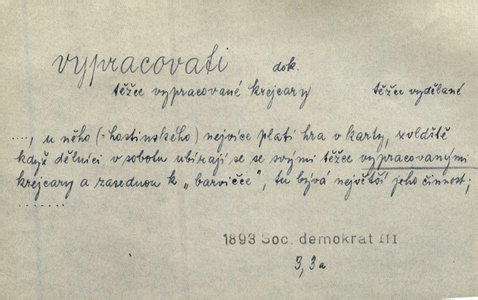 vypracovati dok.
těžce vypracované krejcary těžce vydělané
...., u něho (=hostinského) nejvíce platí hra v karty, zvláště
když dělníci v sobotu ubírají se se svými těžce vypracovanými
krejcary a zasednou k „barvičce", tu bývá největší jeho činnost;
.......
1893 Soc. demokrat III
3, 3a